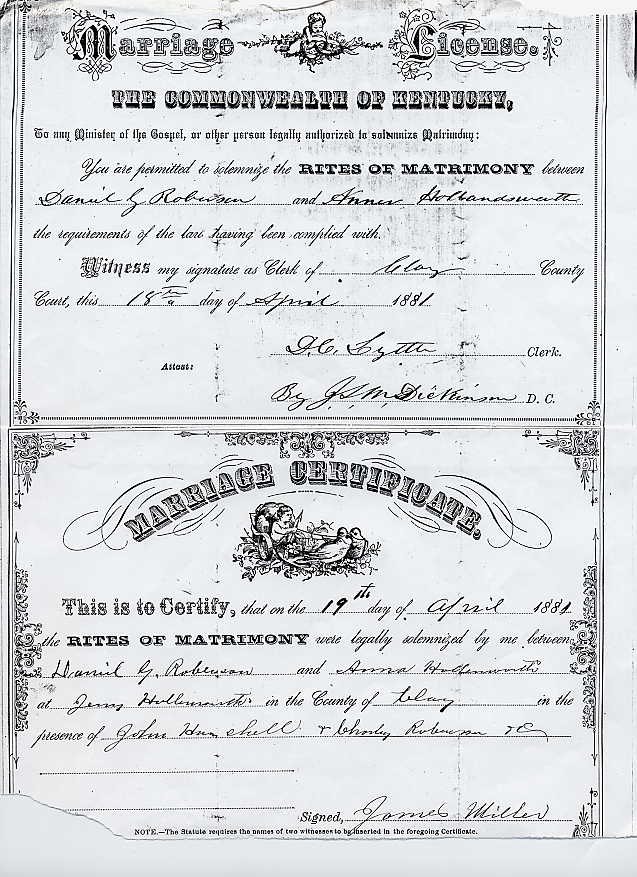 Marriage License.
THE COMMONWEALTH OF KENTUCKY,
To any Minister of the Gospel, or other person legally authorized to solemnize Matrimony:
You are permitted to solemnize the RITES OF MATRIMONY between
Daniel G Roberson and Anner Hollandsworth
the requirements of the law having been complied with.
Witness my signature as Clerk of Clay County
Court, this 18th day of April 1881
D.C. Lyttle Clerk.
Attest:
By J.S. McDickinson D. C.
MARRIAGE CERTIFICATE.
This is to Certify, that on the 19th day of April 1881
the RITES OF MATRIMONY were legally solemnized by me between
Daniel G. Roberson and Anna
at in the County of Clay in the
presence of John & Charley Roberson
Signed, James Miller
NOTE.—The Statute requires the names of two witnesses to be inserted in the foregoing Certificate.